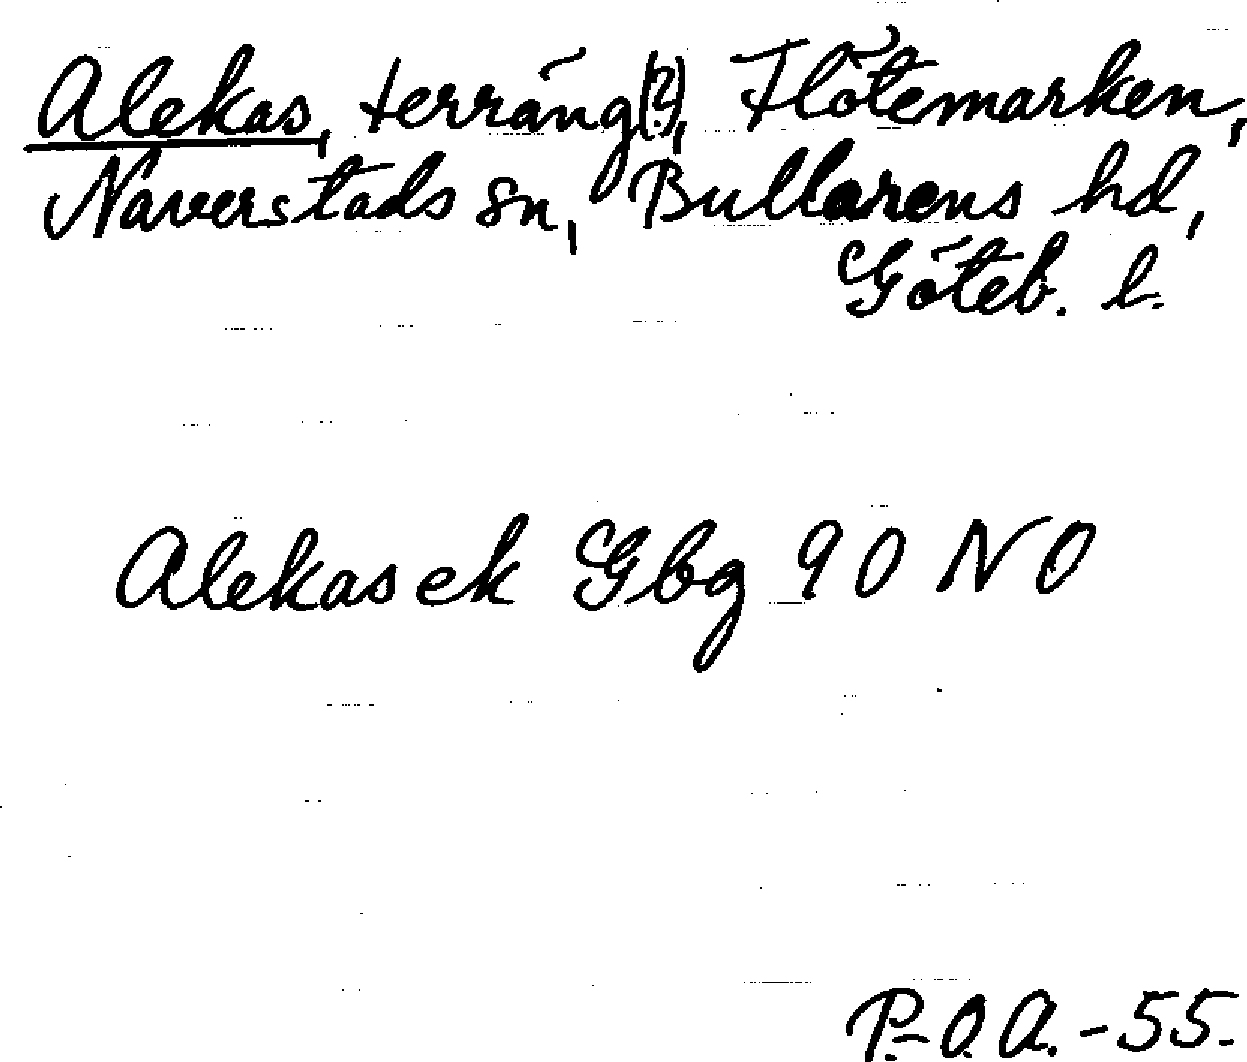 Alekas, terräng(?), Flötemarken,
Naverstads sn, Bullarens hd,
Göteb. l.
Alekas ek Gbg 90 NO
P.-O.A.-55.